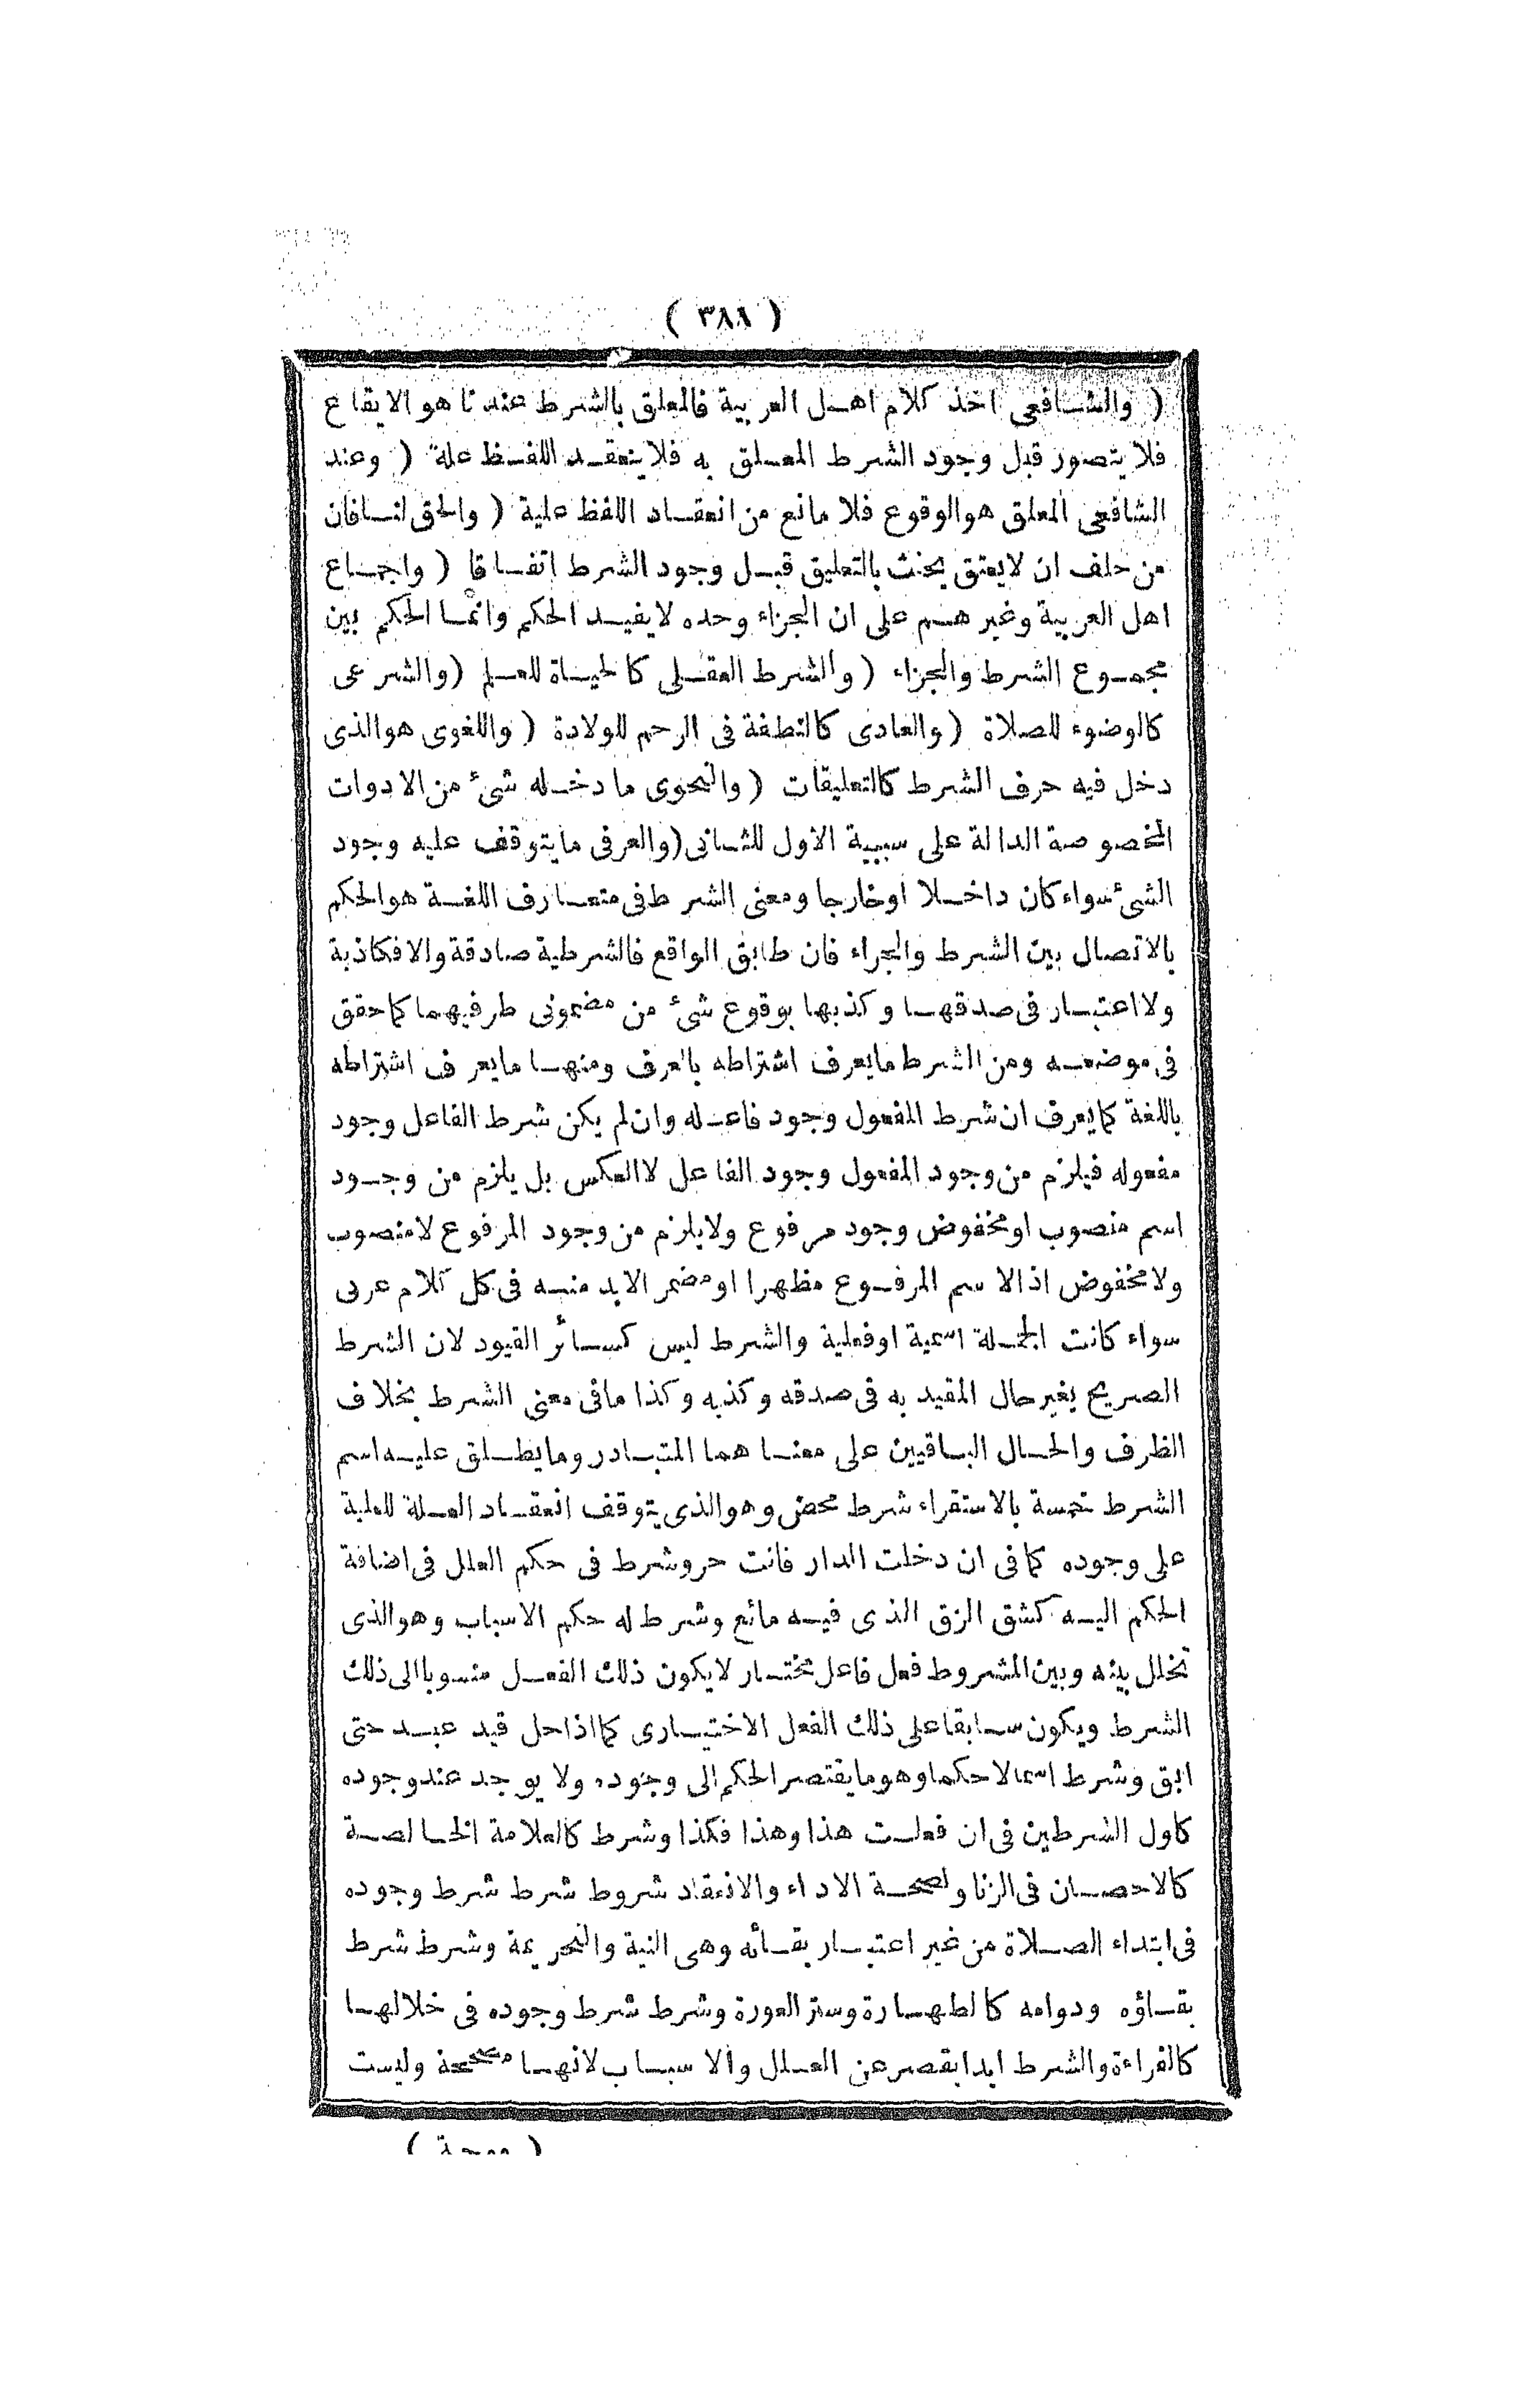 ( ٣٨٨ )
( والشافعى اخذ كلام اهل العربية فالمعلق بالشرط عندنا هو الايقاع
فلا يتصور قبل وجود الشرط المعلق به فلا ينعقد اللفظ علة ( وعند
الشافعى المعلق هو الوقوع فلا مانع من انعقاد اللفظ علية ( والحق لنا فان
من حلف ان لا يعتق يحنث بالتعليق قبل وجود الشرط اتفاقا ( واجماع
اهل العربية وغيرهم على ان الجزاء وحده لا يفيد الحكم وانما الحكم بين
مجموع الشرط والجزاء ( والشرط العقلى كالحياة للعلم ( والشرعى
كالوضوء للصلاة ( والعادى كالنطفة فى الرحم للولادة ( واللغوى هو الذى
دخل فيه حرف الشرط كالتعليقات ( والنحوى ما دخله شئ من الادوات
المخصوصة الدالة على سببية الاول للثانى ( والعرفى ما يتوقف عليه وجود
الشئ سواء كان داخلا او خارجا ومعنى الشرط فى متعارف اللغة هو الحكم
بالاتصال بين الشرط والجزاء فان طابق الواقع فالشرطية صادقة والا فكاذبة
ولا اعتبار فى صدقها وكذبها بوقوع شئ من مضمونى طرفيهما كما حقق
فى موضعه ومن الشرط ما يعرف اشتراطه بالعرف ومنها ما يعرف اشتراطه
باللغة كما يعرف ان شرط المفعول وجود فاعله وان لم يكن شرط الفاعل وجود
مفعوله فيلزم من وجود المفعول وجود الفاعل لا العكس بل يلزم من وجود
اسم منصوب او مخفوض وجود مرفوع ولا يلزم من وجود المرفوع لا منصوب
ولا مخفوض اذ الاسم المرفوع مظهرا او مضمرا لابد منه فى كل كلام عربى
سواء كانت الجملة اسمية او فعلية والشرط ليس كسائر القيود لان الشرط
الصريح يغير حال المقيد به فى صدقه وكذبه وكذا ما فى معنى الشرط بخلاف
الظرف والحال الباقيين على معناهما المتبادر وما يطلق عليه اسم
الشرط خمسة بالاستقراء شرط محض وهو الذى يتوقف انعقاد العلة للعلية
على وجوده كما فى ان دخلت الدار فانت حر وشرط فى حكم العلل فى اضافة
الحكم اليه كشق الزق الذى فيه مائع وشرط له حكم الاسباب وهو الذى
تخلل بينه وبين المشروط فعل فاعل مختار لا يكون ذلك الفعل منسوبا الى ذلك
الشرط ويكون سابقا على ذلك الفعل الاختيارى كما اذا حل قيد عبد حتى
ابق وشرط اسما لا حكما وهو ما يقتصر الحكم الى وجوده ولا يوجد عند وجوده
كاول الشرطين فى ان فعلت هذا وهذا فكذا وشرط كالعلامة الخالصة
كالاحصان فى الزنا ولصحة الاداء والانعقاد شروط شرط شرط وجوده
فى ابتداء الصلاة من غير اعتبار بقائه وهى النية والتحريمة وشرط شرط
بقاؤه ودوامه كالطهارة وستر العورة وشرط شرط وجوده فى خلالها
كالقراءة والشرط ابدا يقصر عن العلل والاسباب لانها مصححة وليست